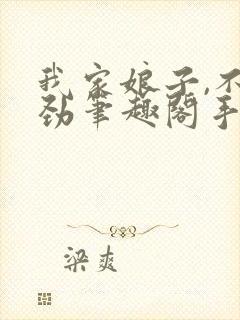 我家娘子,不
劲笔趣阁手
梁爽